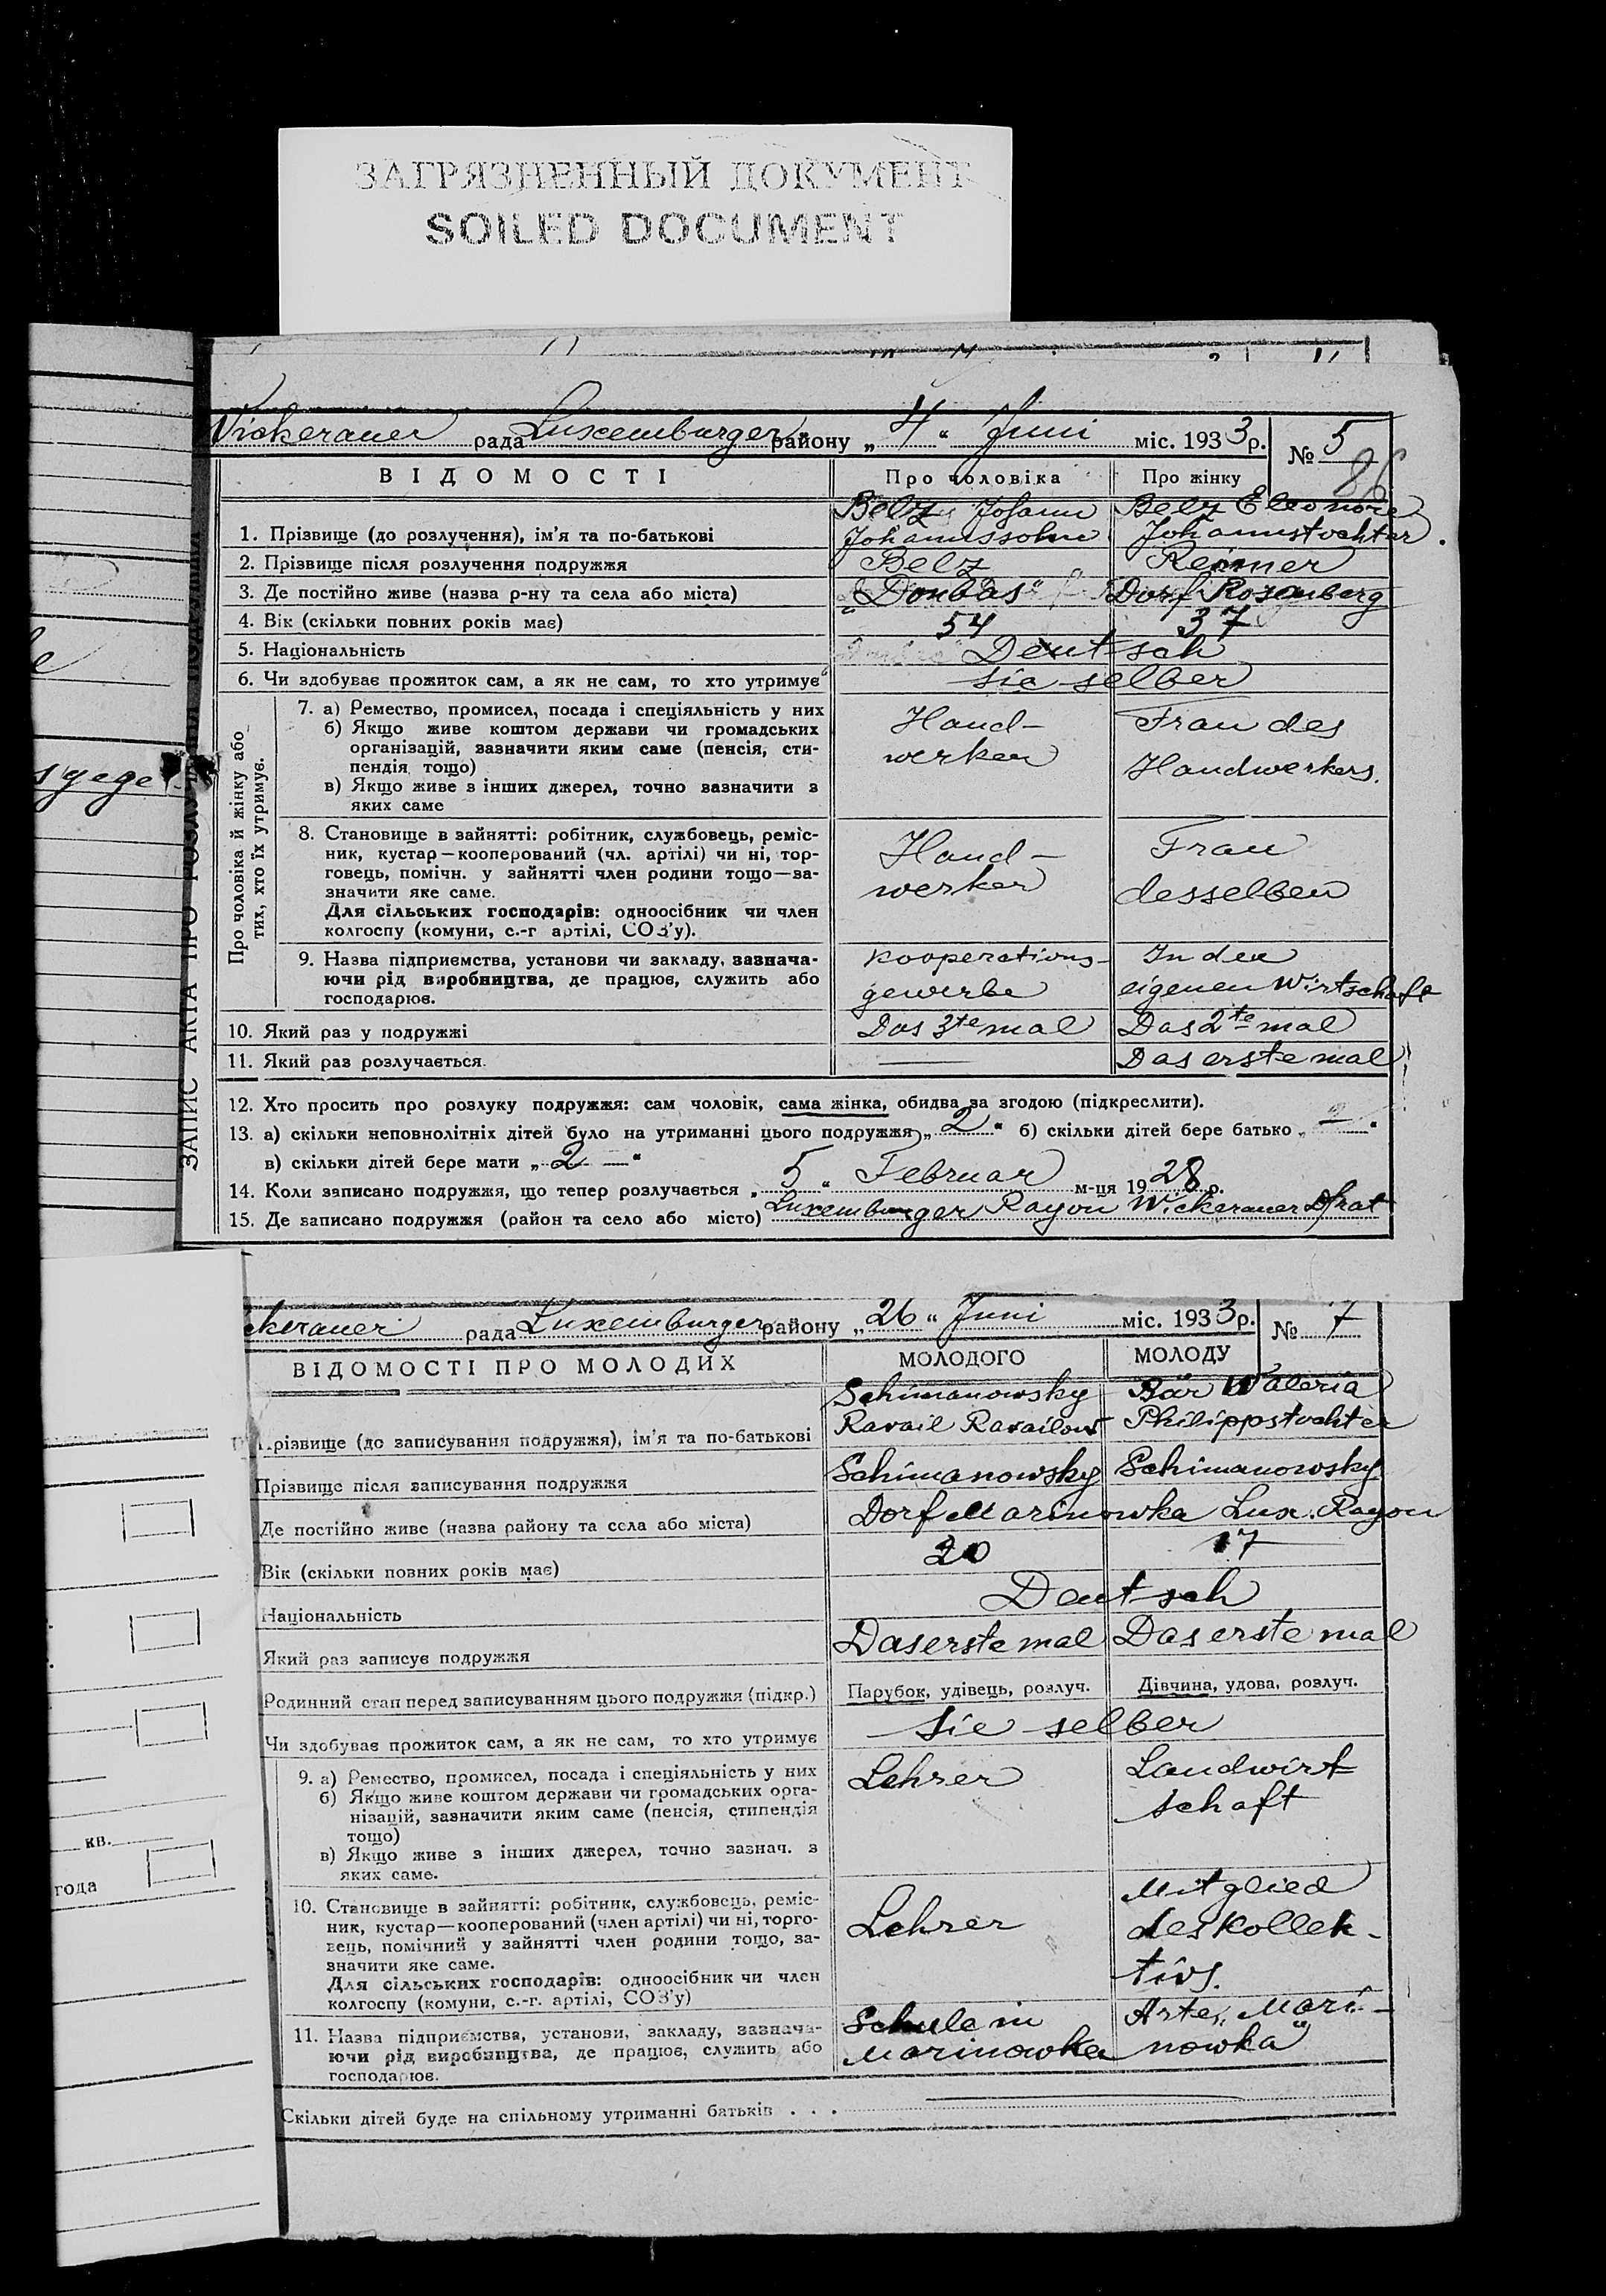 ЗАГРЯЗНЕННЫЙ ДОКУМЕНТ
SOILED DOCUMENT
Wickerauer рада Luxemburger району „ 4 “ Juni міс. 1933 р. № 5
86
ВІДОМОСТІ Про чоловіка Про жінку
Belz Johann Belz Eleonore
1. Прізвище (до розлучення), ім'я та по-батькові Johannssohn Johannstochter
2. Прізвище після розлучення подружжя Belz Reimer
3. Де постійно живе (назва р-ну та села або міста) "Donbas" Dorf Rosenberg
4. Вік (скільки повних років має) 54 37
5. Національність Deutsch
6. Чи здобуває прожиток сам, а як не сам, то хто утримує Sie selber
Про чоловіка й жінку або тих, хто їх утримує.
7. а) Ремество, промисел, посада і спеціяльність у них Hand- Frau des
б) Якщо живе коштом держави чи громадських
організацій, зазначити яким саме (пенсія, сти- werker Handwerkers.
пендія тощо)
в) Якщо живе з інших джерел, точно зазначити з
яких саме
8. Становище в зайнятті: робітник, службовець, реміс- Hand- Frau
ник, кустар—кооперований (чл. артілі) чи ні, тор-
говець, помічн. у зайнятті член родини тощо—за- werker desselben
значити яке саме.
Для сільських господарів: одноосібник чи член
колгоспу (комуни, с.-г артілі, СОЗ'у).
9. Назва підприємства, установи чи закладу, зазнача- Kooperations- In der
ючи рід виробництва, де працює, служить або gewerbe eigenen Wirtschaft
господарює.
10. Який раз у подружжі Das 3te mal Das 2te mal
11. Який раз розлучається. — Das erste mal
12. Хто просить про розлуку подружжя: сам чоловік, сама жінка, обидва за згодою (підкреслити).
13. а) скільки неповнолітніх дітей було на утриманні цього подружжя „ 2 “ б) скільки дітей бере батько „ — “
в) скільки дітей бере мати „ 2 — “
14. Коли записано подружжя, що тепер розлучається „ 5 “ Februar м-ця 1928 р.
15. Де записано подружжя (район та село або місто) Luxemburger Rayon Wickerauer Dfrat
ЗАПИС АКТА ПРО
syege
ckerauer рада Luxemburger району „ 26 “ Juni міс. 1933 р. № 7
ВІДОМОСТІ ПРО МОЛОДИХ МОЛОДОГО МОЛОДУ
Schimanowsky Bär Waleria
різвище (до записування подружжя), ім'я та по-батькові Ravail Ravailow Philippstochter
Прізвище після записування подружжя Schimanowsky Schimanowsky
Де постійно живе (назва району та села або міста) Dorf Marinowka Lux. Rayon
Вік (скільки повних років має) 20 17
Національність Deutsch
Який раз записує подружжя Das erste mal Das erste mal
Родинний стан перед записуванням цього подружжя (підкр.) Парубок, удівець, розлуч. Дівчина, удова, розлуч.
Чи здобуває прожиток сам, а як не сам, то хто утримує Sie selber
9. а) Ремество, промисел, посада і спеціяльність у них Lehrer Landwirt-
б) Якщо живе коштом держави чи громадських орга-
нізацій, зазначити яким саме (пенсія, стипендія schaft
тощо)
в) Якщо живе з інших джерел, точно зазнач. з
яких саме.
10. Становище в зайнятті: робітник, службовець, реміс- Mitglied
ник, кустар—кооперований (член артілі) чи ні, торго- Lehrer des Kollek-
вець, помічний у зайнятті член родини тощо, за-
значити яке саме. tivs.
Для сільських господарів: одноосібник чи член
колгоспу (комуни, с.-г. артілі, СОЗ'у)
11. Назва підприємства, установи, закладу, зазнача- Schule in Arte„ Mari-
ючи рід виробництва, де працює, служить або Marinowka nowka"
господарює.
Скільки дітей буде на спільному утриманні батьків . . .
кв.
года